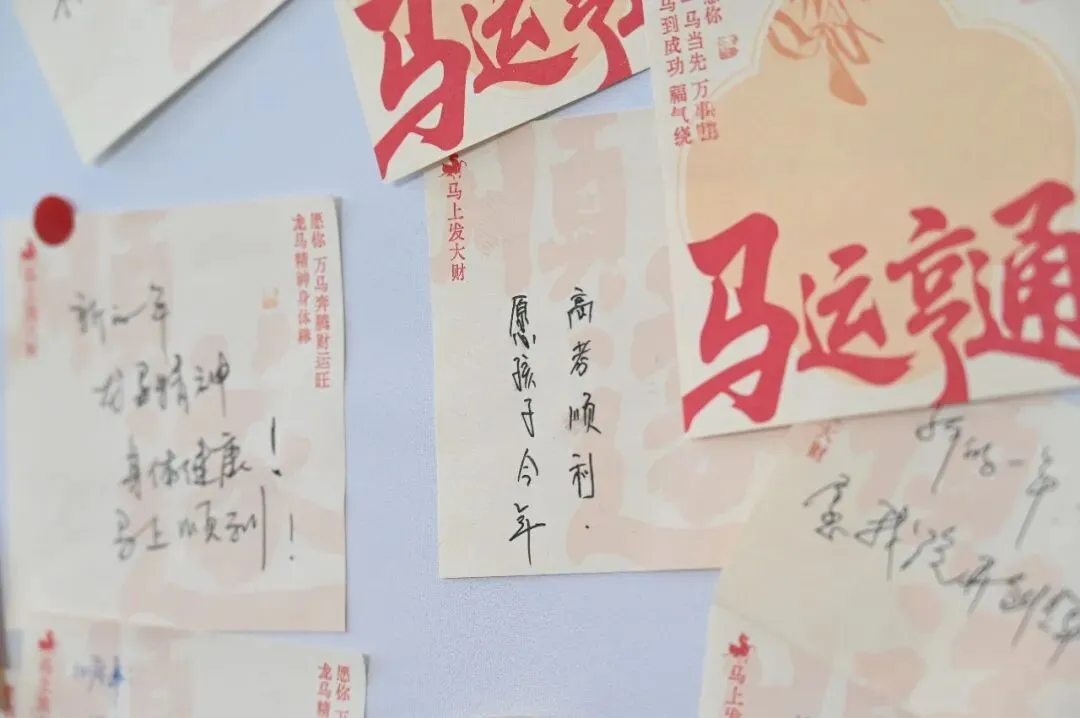 马运亨
愿你 一马当先 万事
马到成功 福气绕
马运亨通
马上发大财
愿孩子今年
高考顺利.
愿你 万马奔腾财运旺
龙马精神身体棒
新的一年
龙马精神
身体健康!
马上顺利!
大财
新的一年
愿你 万
龙马精
马上发